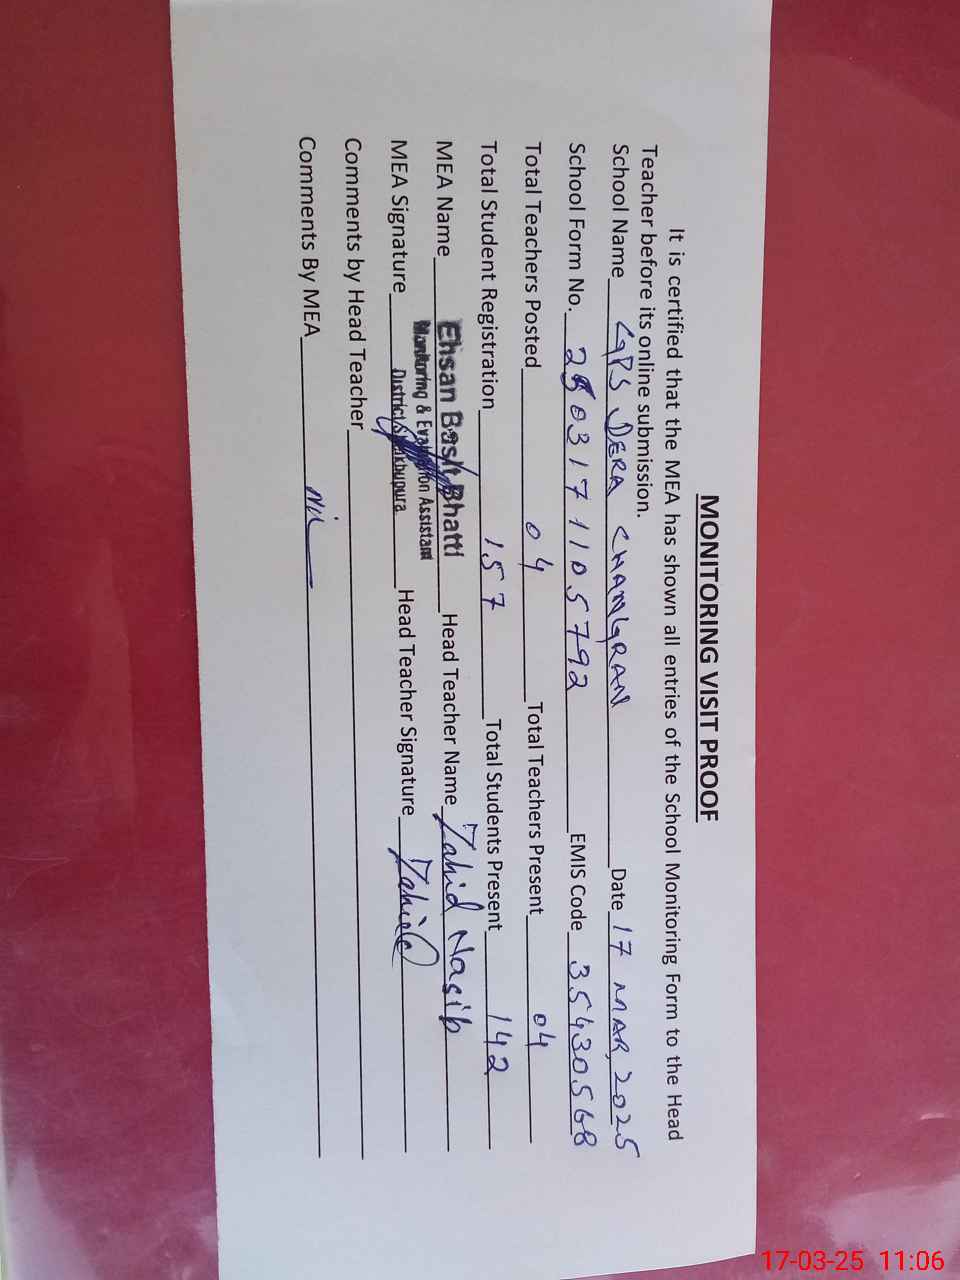 MONITORING VISIT PROOF
It is certified that the MEA has shown all entries of the School Monitoring Form to the Head
Teacher before its online submission.
School Name GPS DERA CHANGRAN Date 17 MAR, 2025
School Form No. 2503171105792 EMIS Code 35430568
Total Teachers Posted 04 Total Teachers Present 04
Total Student Registration 157 Total Students Present 142
MEA Name Ehsan Basit Bhatti Head Teacher Name Zahid Nasib
Monitoring & Evaluation Assistant
MEA Signature District Sheikhupura Head Teacher Signature Zahid
Comments by Head Teacher
Comments By MEA Nil
17-03-25 11:06